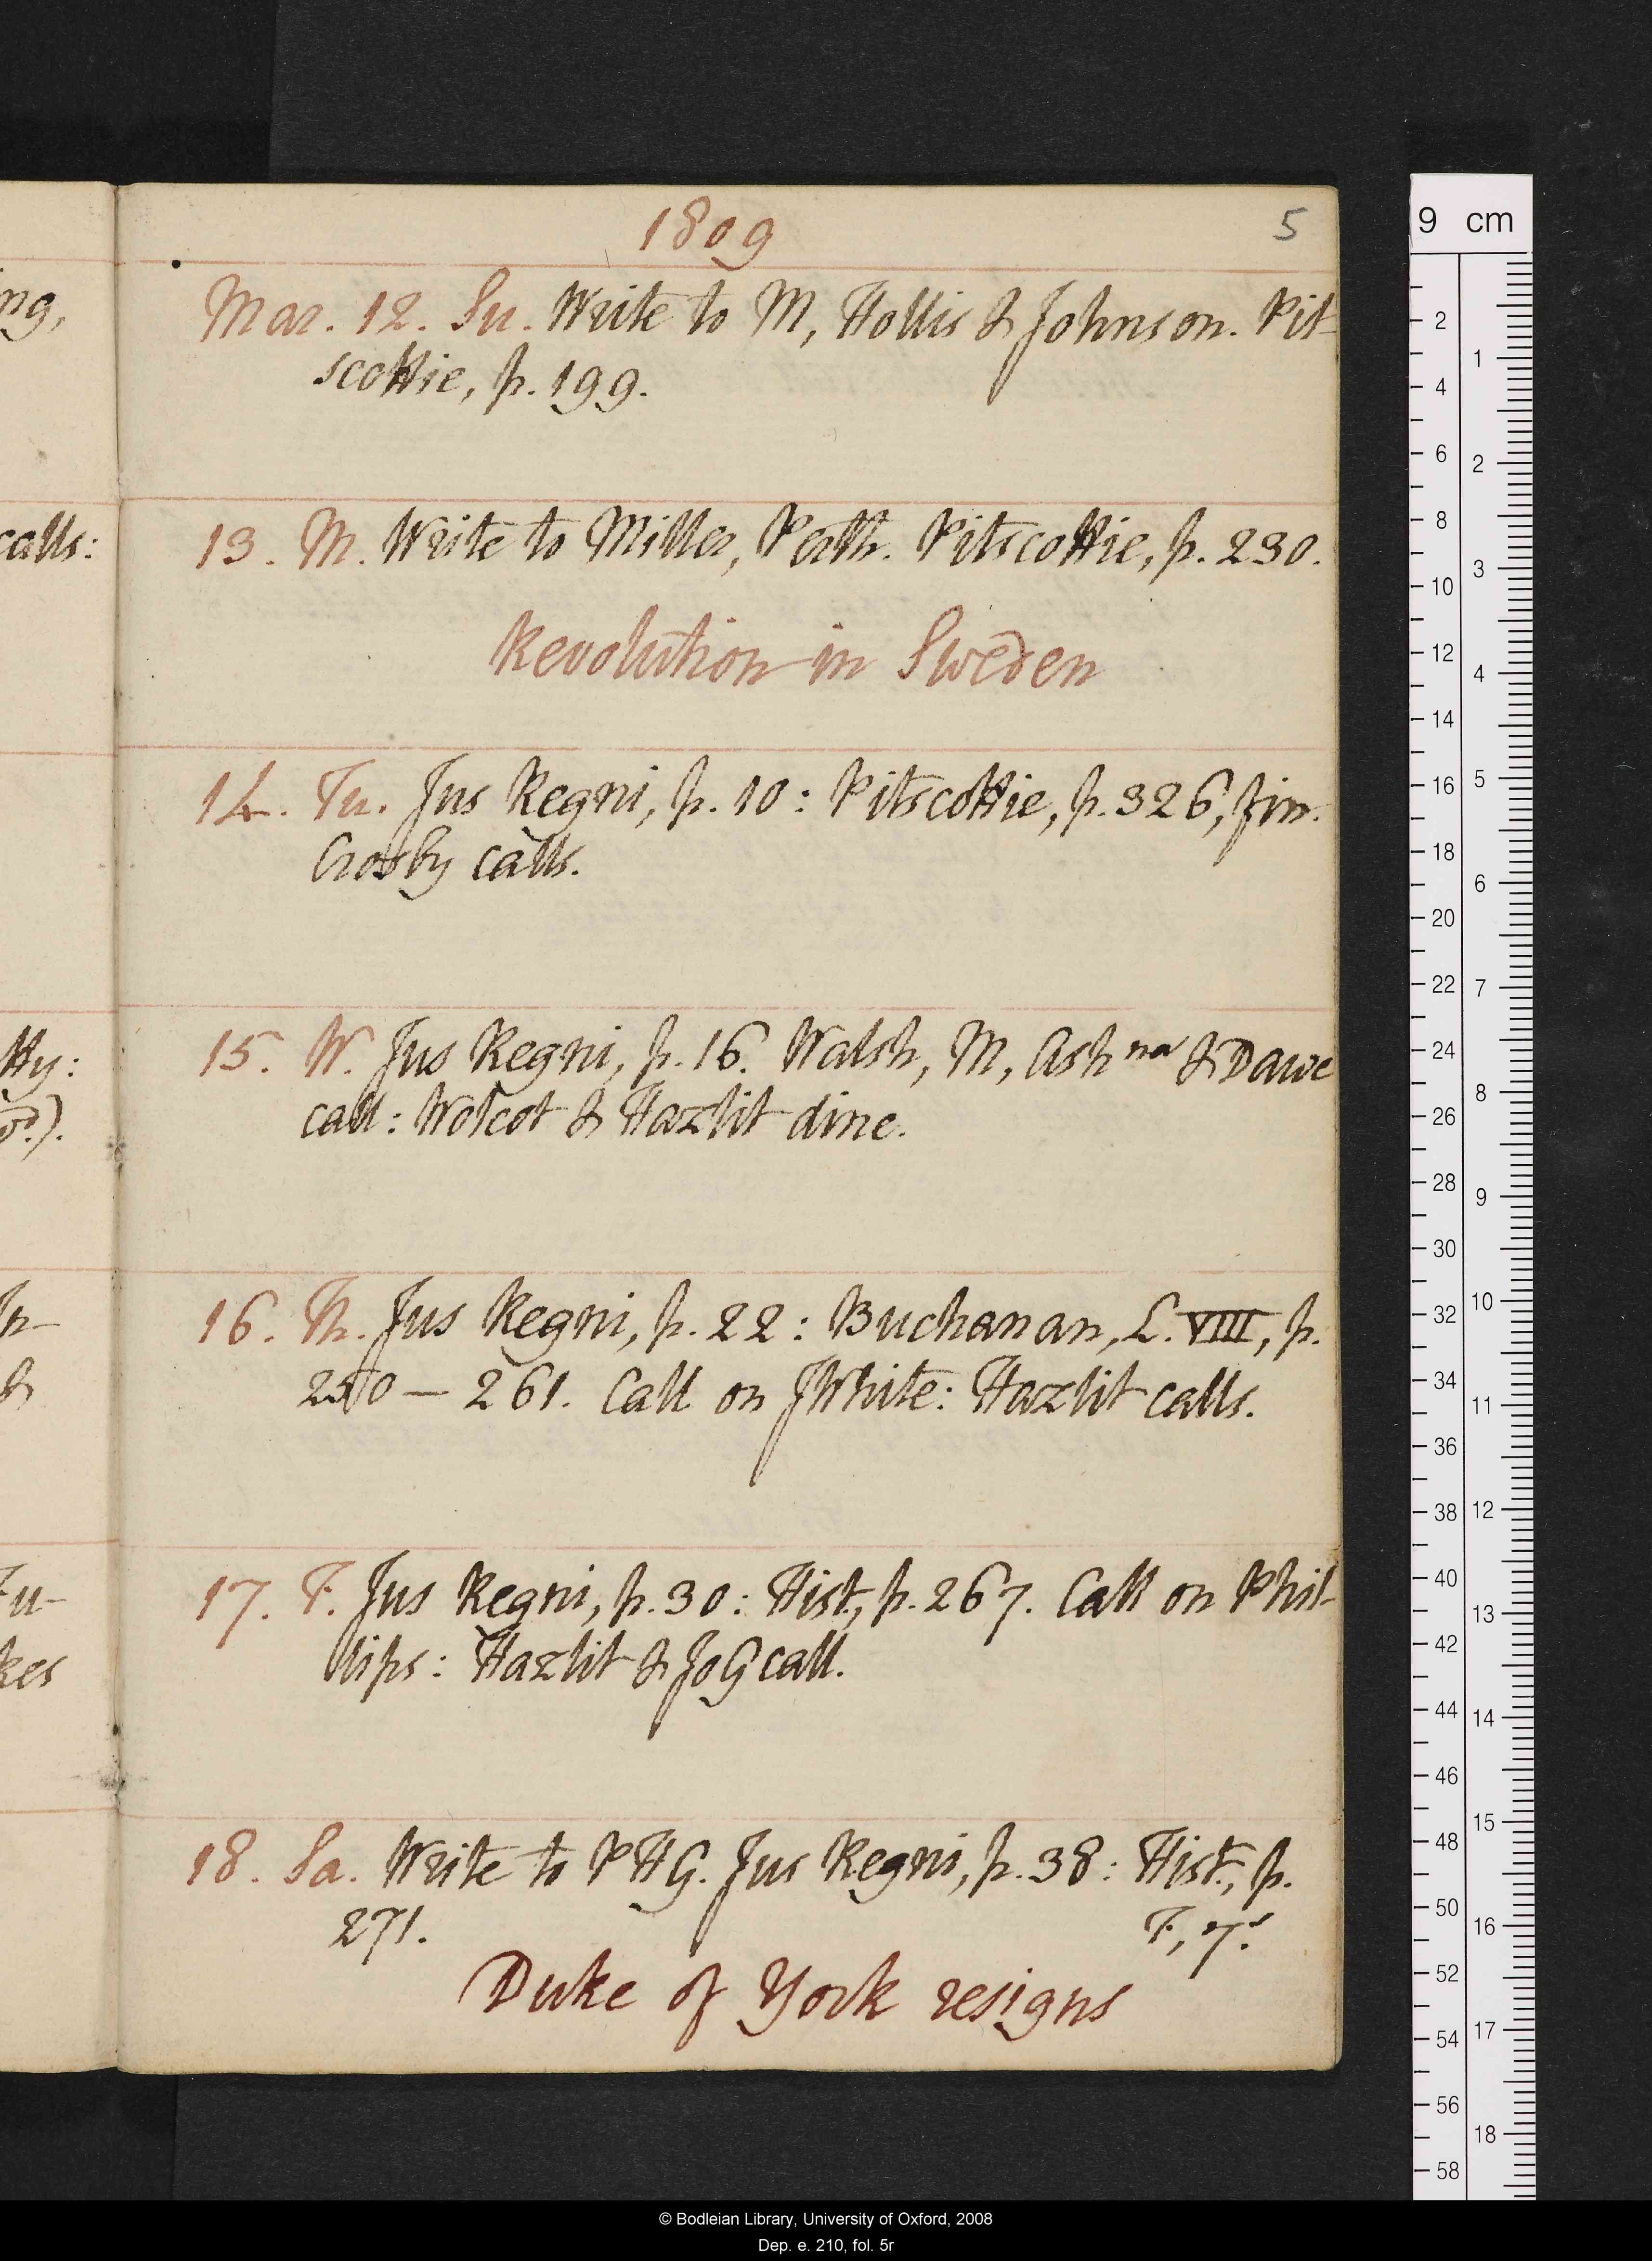 1809
5
Mar. 12. Su. Write to M, Hollis & Johnson. Pit-
scottie, p. 199.
13. M. Write to Miller, Perth. Pitscottie, p. 230.
Revolution in Sweden
14. Tu. Jus Regni, p. 10: Pitscottie, p. 326, fin.
Crosby calls.
15. W. Jus Regni, p. 16. Walsh, M, Ashna & Dawe
call: Wolcot & Hazlit dine.
16. Th. Jus Regni, p. 22: Buchanan, L. VIII, p.
250 — 261. Call on JWhite: Hazlit calls.
17. F. Jus Regni, p. 30: Hist., p. 267. Call on Phil-
lips: Hazlit & JoG call.
18. Sa. Write to PHG. Jus Regni, p. 38: Hist., p.
271.
Duke of York resigns
ng,
calls:
kes
9 cm
2
4
6
8
10
12
14
16
18
20
22
24
26
28
30
32
34
36
38
40
42
44
46
48
50
52
54
56
58
1
2
3
4
5
6
7
8
9
10
11
12
13
14
15
16
17
18
© Bodleian Library, University of Oxford, 2008
Dep. e. 210, fol. 5r